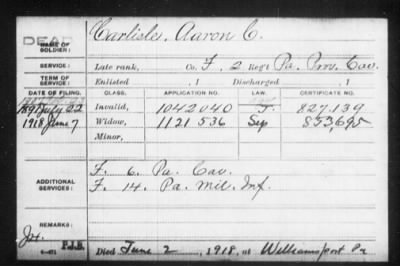 DEAD
NAME OF SOLDIER: Carlisle, Aaron C.
SERVICE: Late rank, Co. F, 2 Reg't Pa. Prov. Cav.
TERM OF SERVICE: Enlisted , 1 Discharged , 1
DATE OF FILING. CLASS. APPLICATION NO. LAW. CERTIFICATE NO.
1891 July 22 Invalid, 1042040 827.139
1918 June 7 Widow, 1121536 Sep 853,695
Minor,
ADDITIONAL SERVICES: F. 6. Pa. Cav.
F. 14. Pa. Mil. Inf.
REMARKS:
P.I.B. Died June 2, 1918, at Williamsport Pa